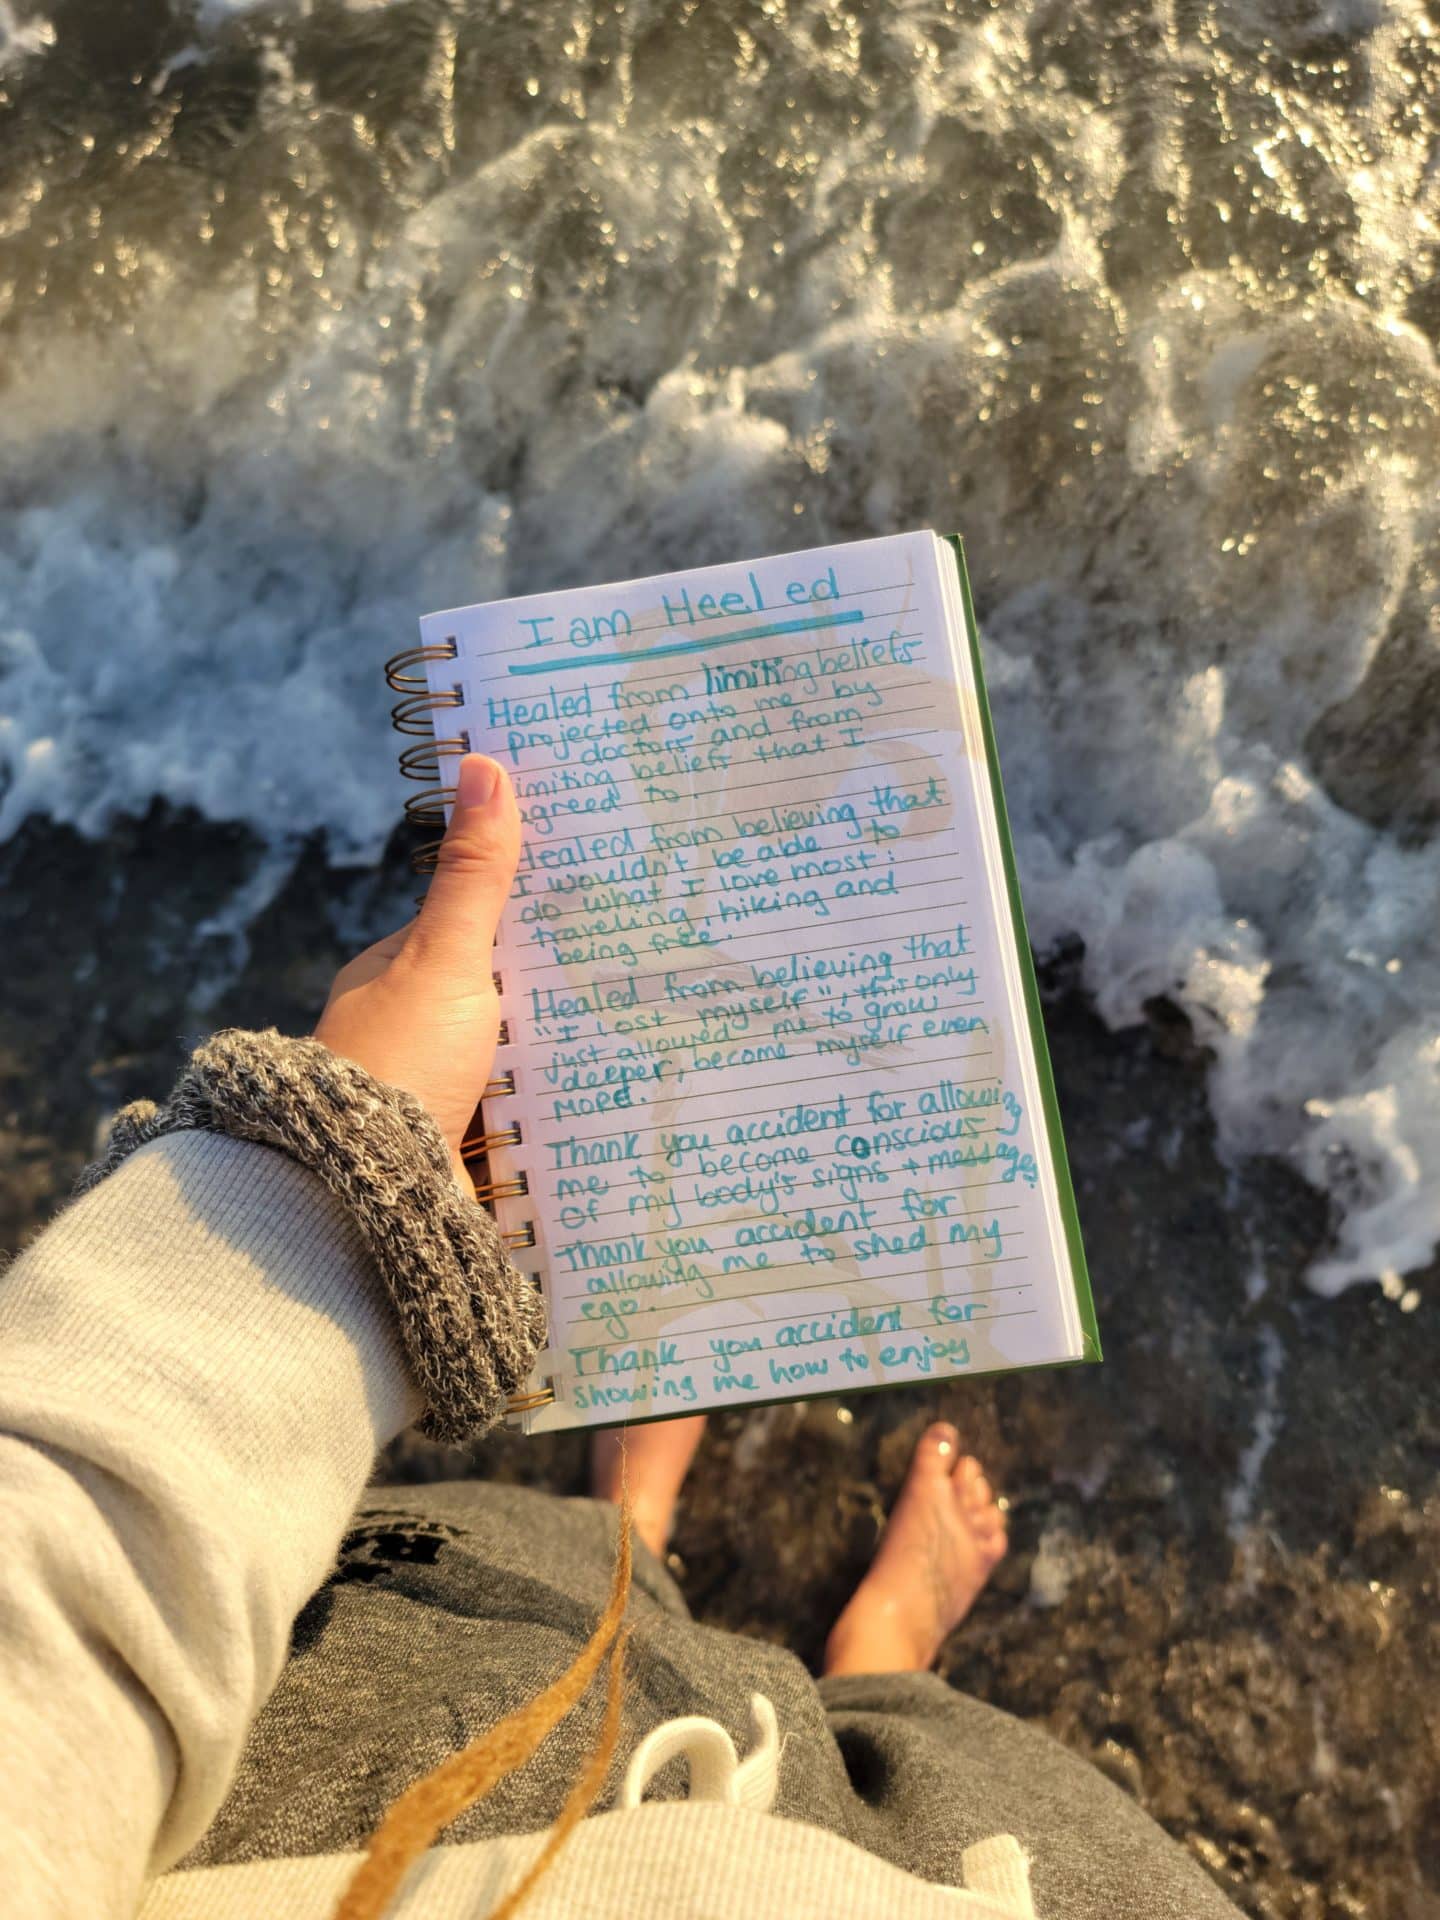 I am Heeled
Healed from limiting beliefs
projected onto me by
doctors and from
limiting beliefs that I
agreed to.
Healed from believing that
I wouldn't be able to
do what I love most:
traveling, hiking and
being free.
Healed from believing that
"I lost myself", this only
just allowed me to grow
deeper, become myself even
MORE.
Thank you accident for allowing
me to become conscious
of my body's signs + messages
Thank you accident for
allowing me to shed my
ego.
Thank you accident for
showing me how to enjoy